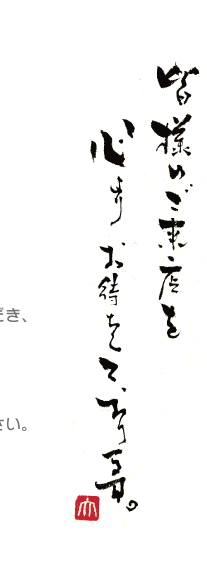 皆様のご来店を
心よりお待ちしております。
だき、
さい。